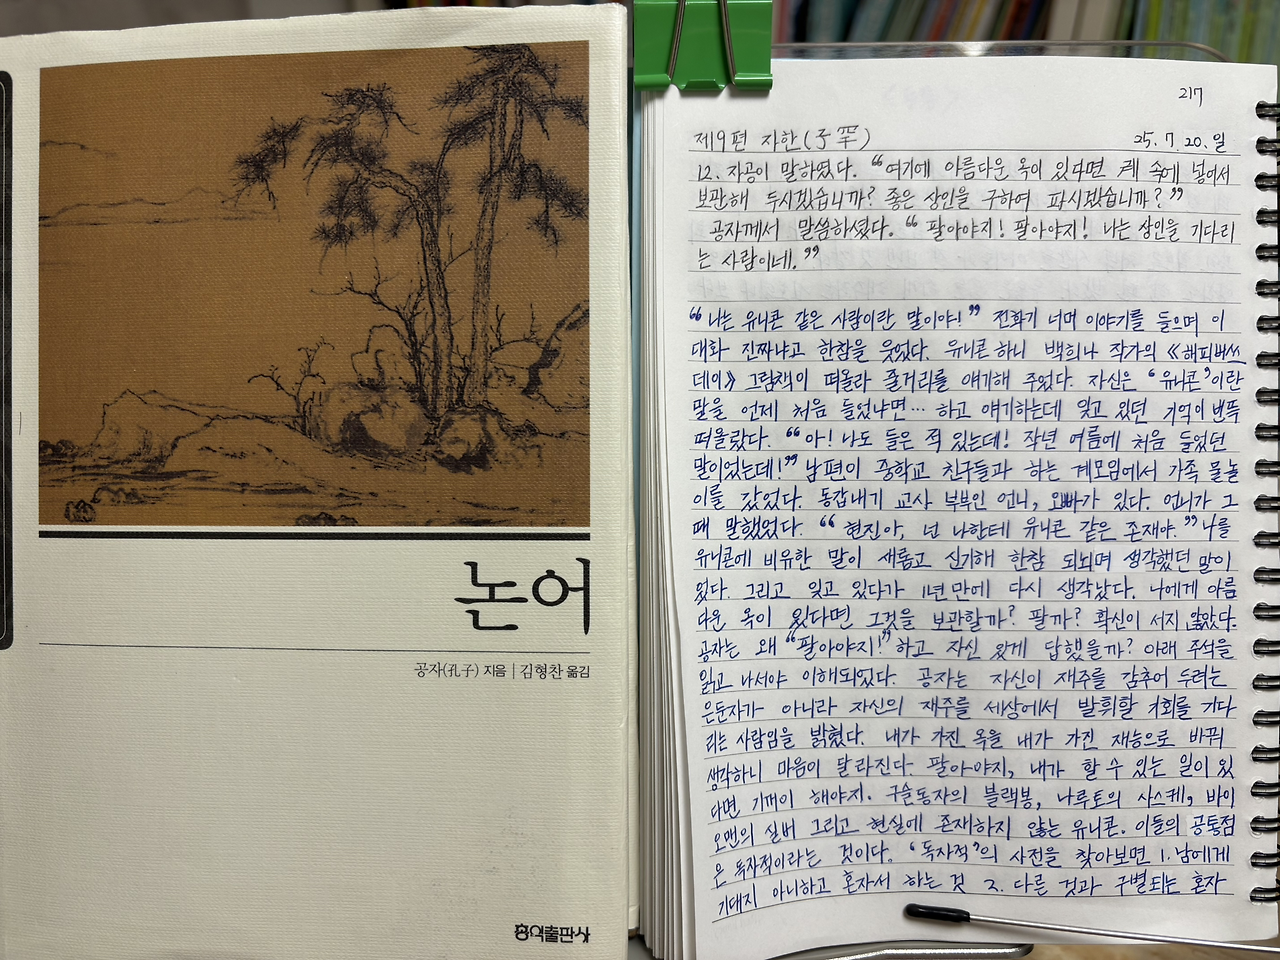 논어
공자(孔子) 지음 | 김형찬 옮김
홍익출판사
217
제9편 자한(子罕) 25. 7. 20. 일
12. 자공이 말하였다. "여기에 아름다운 옥이 있다면 궤 속에 넣어서
보관해 두시겠습니까? 좋은 상인을 구하여 파시겠습니까?"
공자께서 말씀하셨다. "팔아야지! 팔아야지! 나는 상인을 기다리
는 사람이네."
"나는 유니콘 같은 사람이란 말이야!" 전화기 너머 이야기를 들으며 이
대화 진짜냐고 한참을 웃었다. 유니콘 하니 백희나 작가의 《해피버쓰
데이》 그림책이 떠올라 줄거리를 얘기해 주었다. 자신은 '유니콘'이란
말을 언제 처음 들었냐면… 하고 얘기하는데 잊고 있던 기억이 번뜩
떠올랐다. "아! 나도 들은 적 있는데! 작년 여름에 처음 들었던
말이었는데!" 남편이 중학교 친구들과 하는 계모임에서 가족 물놀
이를 갔었다. 동갑내기 교사 부부인 언니, 오빠가 있다. 언니가 그
때 말했었다. "현진아, 넌 나한테 유니콘 같은 존재야." 나를
유니콘에 비유한 말이 새롭고 신기해 한참 되뇌며 생각했던 말이
었다. 그리고 잊고 있다가 1년 만에 다시 생각났다. 나에게 아름
다운 옥이 있다면 그것을 보관할까? 팔까? 확신이 서지 않았다.
공자는 왜 "팔아야지!"하고 자신 있게 답했을까? 아래 주석을
읽고 나서야 이해되었다. 공자는 자신이 재주를 감추어 두려는
은둔자가 아니라 자신의 재주를 세상에서 발휘할 기회를 기다
리는 사람임을 밝혔다. 내가 가진 옥을 내가 가진 재능으로 바꿔
생각하니 마음이 달라진다. 팔아야지, 내가 할 수 있는 일이 있
다면 기꺼이 해야지. 구슬동자의 블랙봉, 나루토의 사스케, 바이
오맨의 실버 그리고 현실에 존재하지 않는 유니콘. 이들의 공통점
은 독자적이라는 것이다. '독자적'의 사전을 찾아보면 1. 남에게
기대지 아니하고 혼자서 하는 것 2. 다른 것과 구별되는 혼자